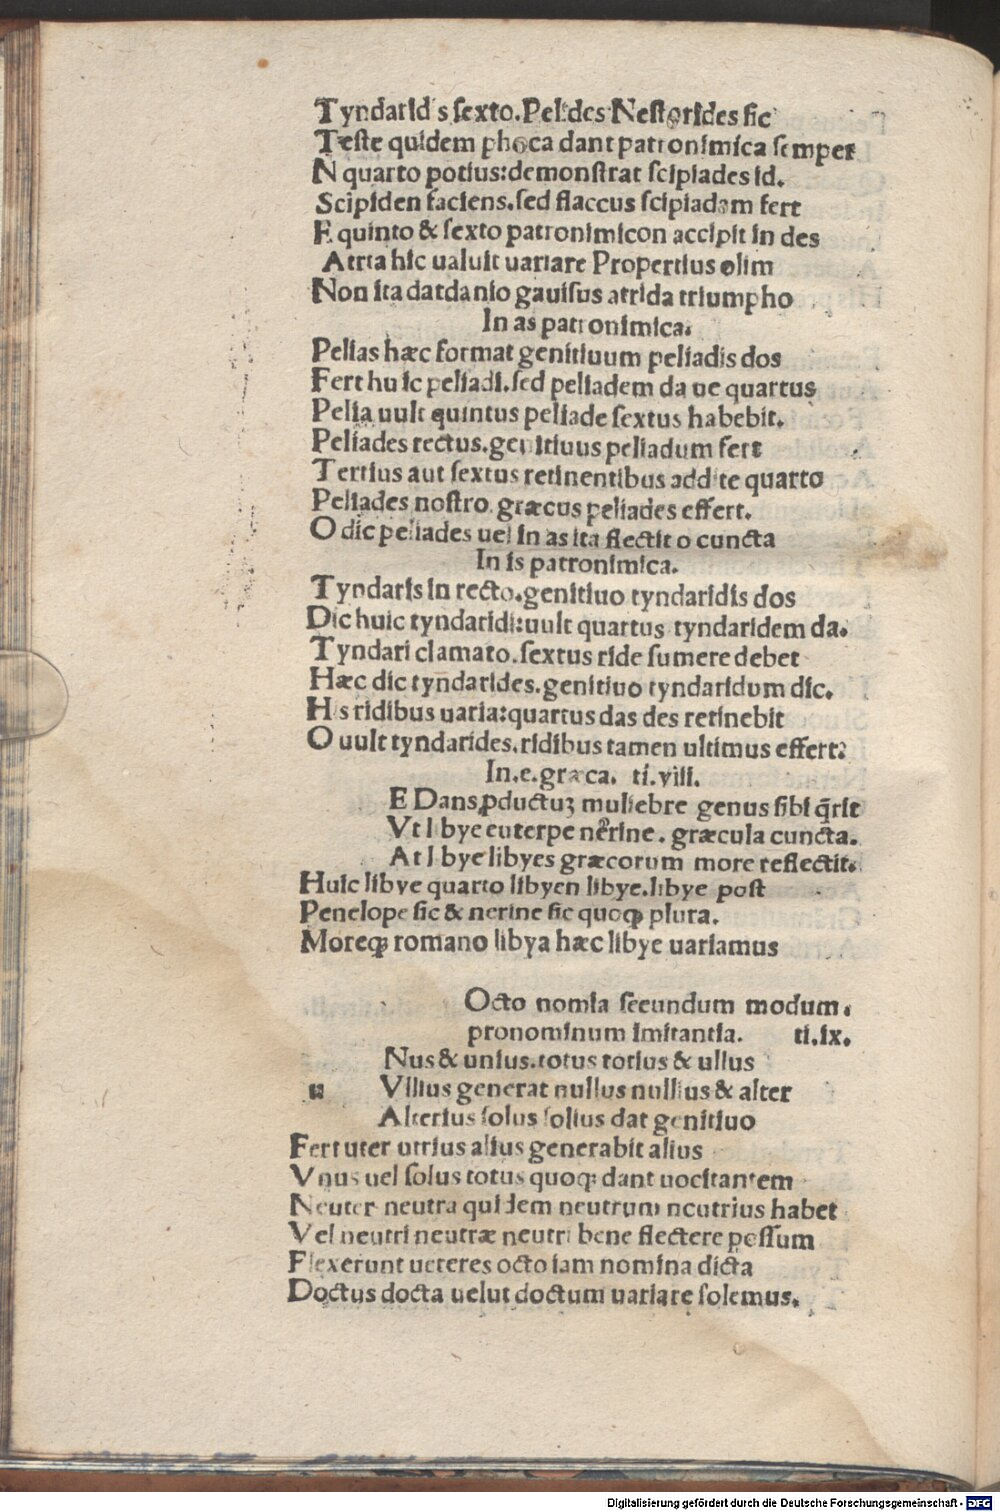 Tyndarid s sexto. Pelides Nestorides sic
Teste quidem phoca dant patronimica semper
N quarto potius: demonstrat scipiades id.
Scipiden faciens. sed flaccus scipiadam fert
E quinto & sexto patronimicon accipit in des
Atrta hic ualuit uariare Propertius olim
Non ita datdanio gauisus atrida triumpho
In as patronimica.
Pelias hæc format genitiuum peliadis dos
Fert huic peliadi. sed peliadem da ue quartus
Pelia uult quintus peliade sextus habebit.
Peliades rectus. genitiuus peliadum fert
Tertius aut sextus retinentibus addite quarto
Peliades nostro. græcus peliades effert.
O dic peliades uel in as ita flectit o cuncta
In is patronimica.
Tyndaris in recto. genitiuo tyndaridis dos
Dic huic tyndaridi: uult quartus tyndaridem da.
Tyndari clamato. sextus ride sumere debet
Hæc dic tyndarides. genitiuo tyndaridum dic.
His ridibus uaria: quartus das des retinebit
O uult tyndarides. ridibus tamen ultimus effert:
In. e. græca. ti. viii.
E Dans ꝓductuꝫ muliebre genus sibi q̄rit
Vt libye euterpe nerine. græcula cuncta.
At libye libyes græcorum more reflectit.
Huic libye quarto libyen libye. libye post
Penelope sic & nerine sic quoqꝫ plura.
Moreqꝫ romano libya hæc libye uariamus
Octo nomia secundum modum.
pronominum imitantia. ti. ix.
Nus & unius. totus totius & ullus
u Vllius generat nullus nullius & alter
Alterius solus solius dat genitiuo
Fert uter utrius alius generabit alius
Vnus uel solus totus quoqꝫ dant uocitantem
Neuter neutra quidem neutrum neutrius habet
Vel neutri neutræ neutri bene flectere possum
Flexerunt ueteres octo iam nomina dicta
Doctus docta uelut doctum uariare solemus.
Digitalisierung gefördert durch die Deutsche Forschungsgemeinschaft - DFG